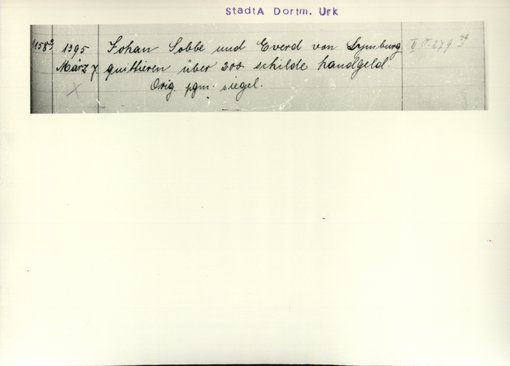 StadtA Dortm. Urk
1158a 1395 Johan Sobbe und Everd von Lymburg II n. 279
März 7 quittieren über 200 schilde handgeld.
Orig. pgm. siegel.